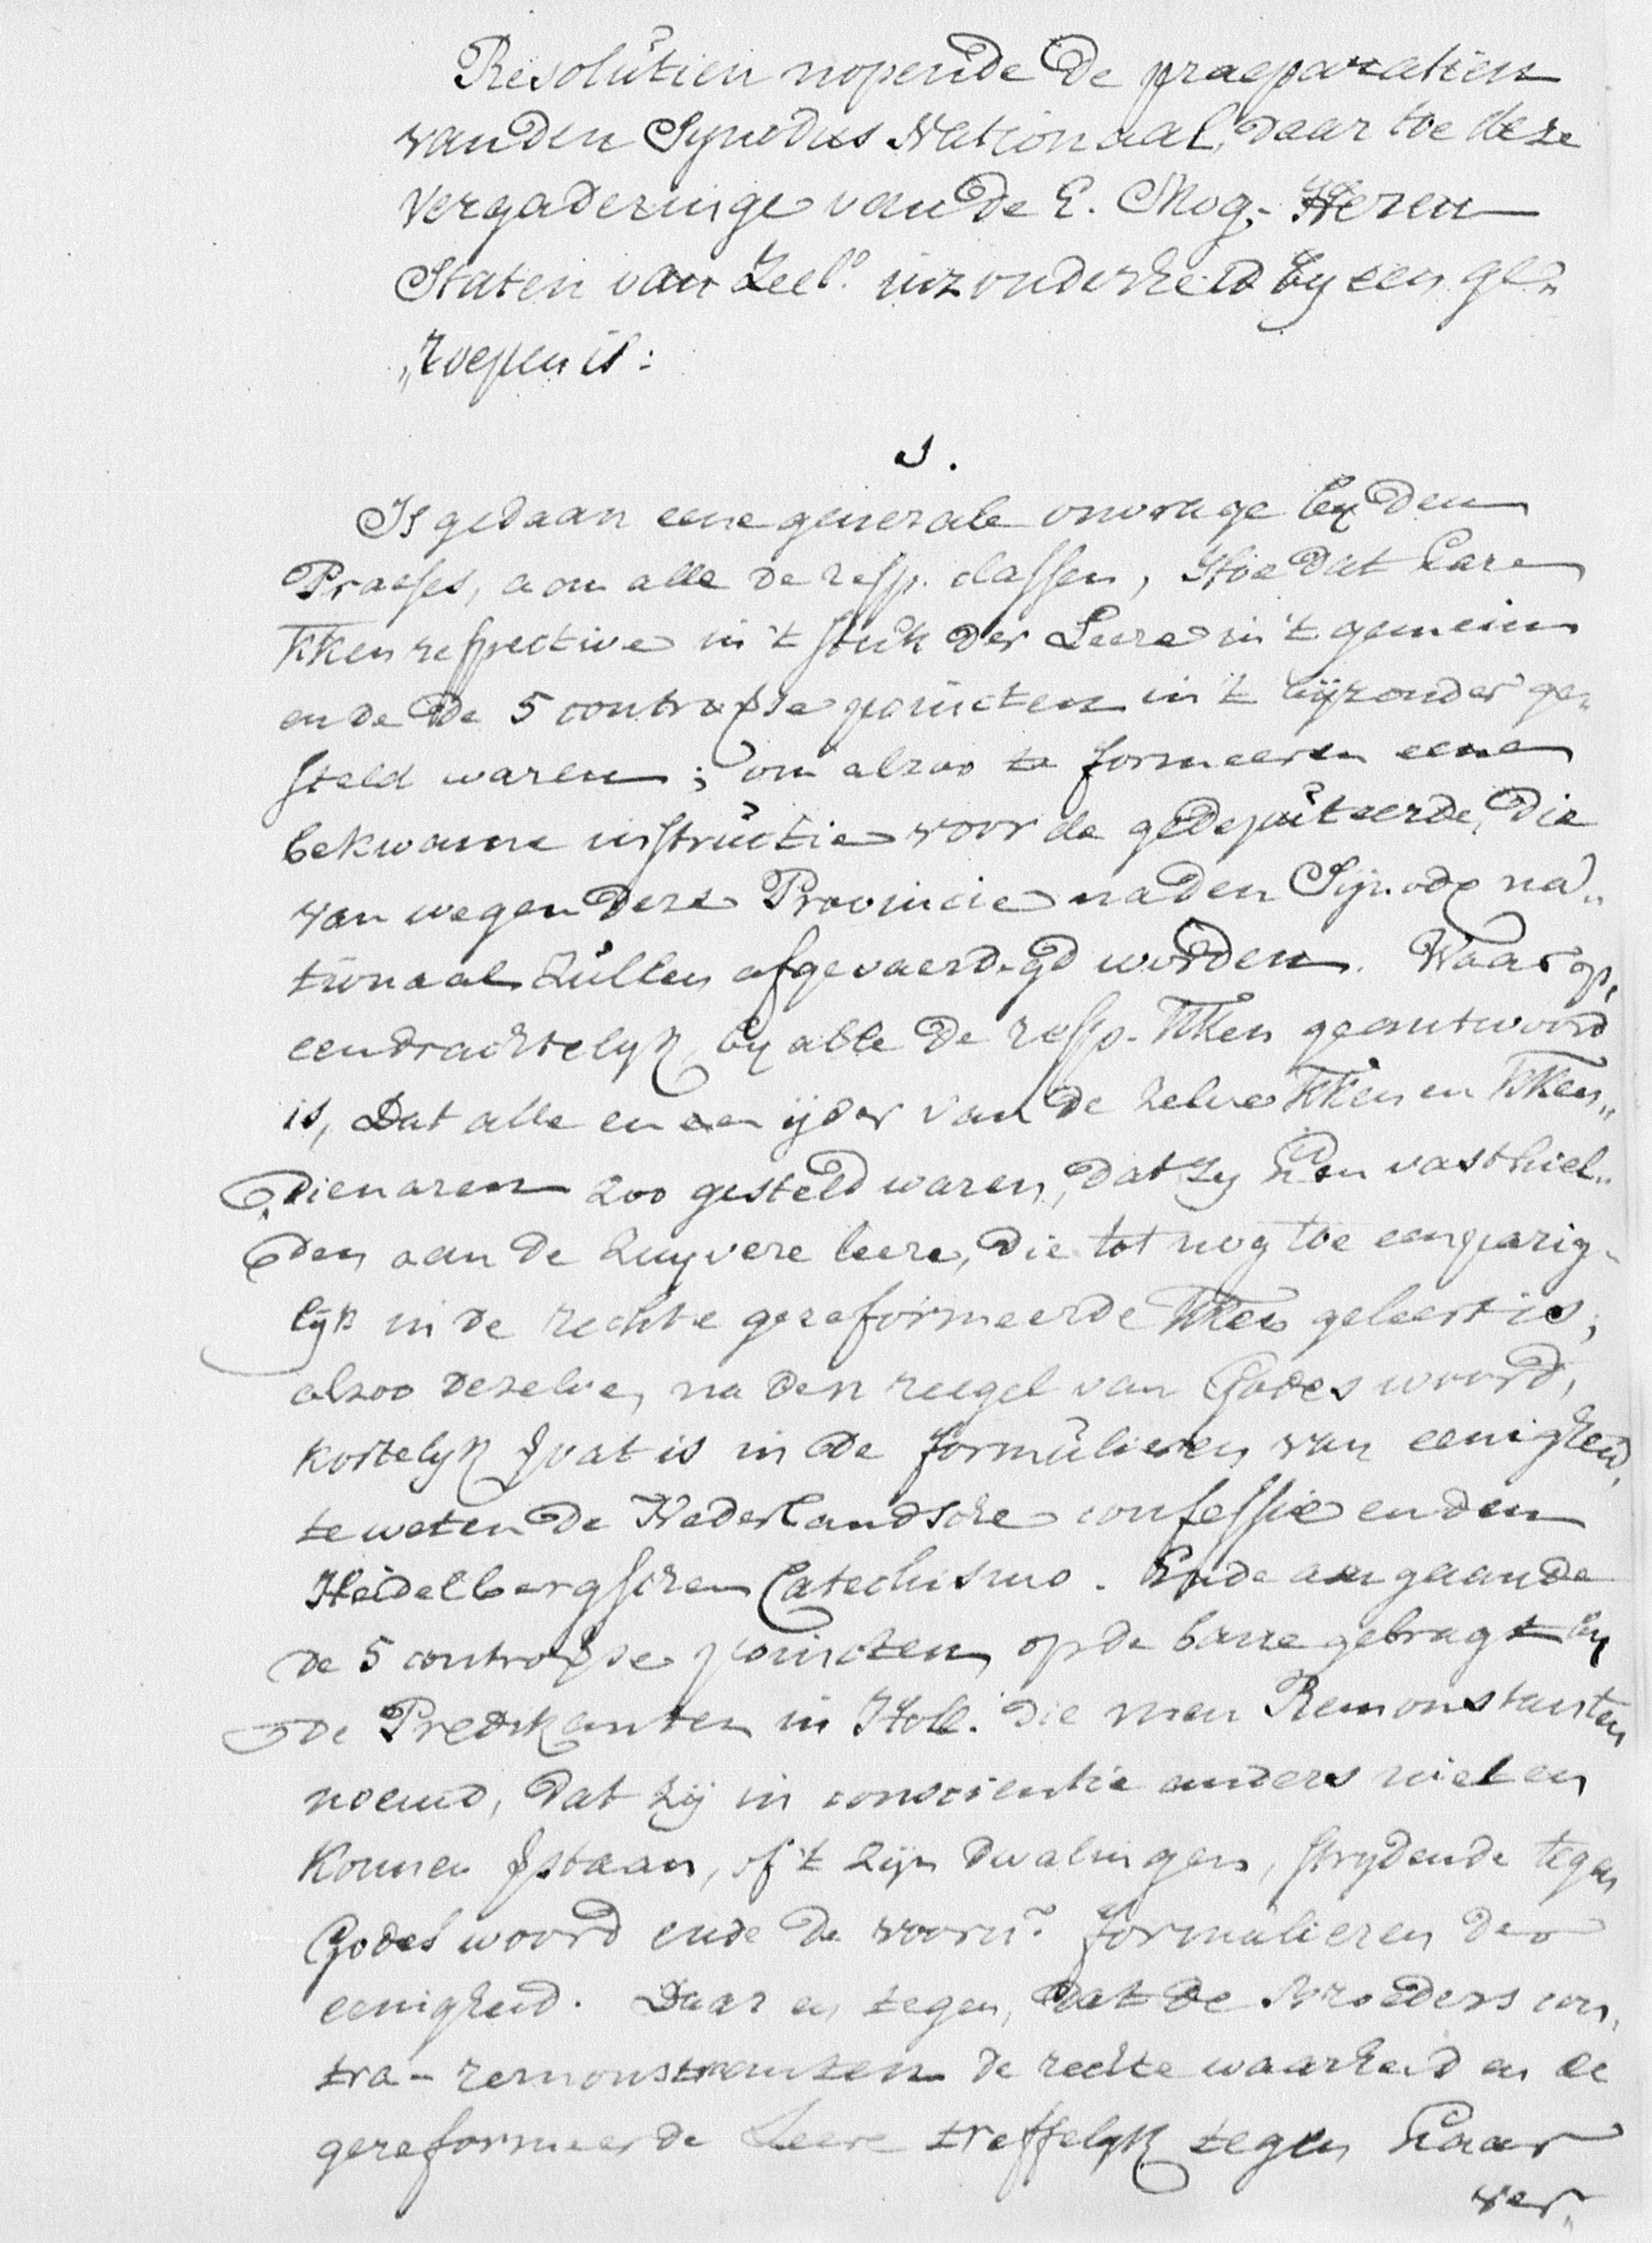 Resolútien nopende De praeparatien
van den Synodus Nationaal, daar toe deze
Vergaderinge van De E. Mog. Heren
Staten van Zeel.ᵈ inzonderheid by een ge„
„roepen is:
1.
Is gedaan eene generale omvrage by Den
Praeses, aan alle de resp. classen, Hoe dat hare
KKen respective in 't stuk der Leere in 't gemein
ende De 5 controvse poincten in 't bijzonder ge„
steld waren; om alzoo te formeeren eene
bekwame instructie voor de gedeputeerde, die
van wegen deze Provincie na den Synode na„
tionaal zullen afgevaerdigd worden. Waar op,
eendrachtelyk by alle De resp. KKen geantwoord
is, Dat alle en een ijder van De zelve KKen en KKen„
„Dienaren zoo gesteld waren, dat zy hen vasthiel„
den aan De zuyvere leere, die tot nog toe eenparig„
lyk in De rechte gereformeerde KKen geleert is;
alzoo dezelve, na den regel van Godes woord,
kortelyk gvat is in De formulieren van eenigheid,
te weten De Nederlandsche confessie en den
Heidelbergschen Catechismo. Ende aangaande
De 5 controvse poincten, op de bane gebragt by
De Predikanten in Holl. Die men Remonstranten
noemd, Dat zij in conscientie anders niet en
konnen vstaan, of 't zijn dwalingen, strydende tegen
Godes woord ende De voorn. formulieren der
eenigheid. Daar en tegen, Dat De Broeders con„
tra-remonstranten De rechte waarheid en De
gereformeerde Leere treffelyk tegen haar
ver„